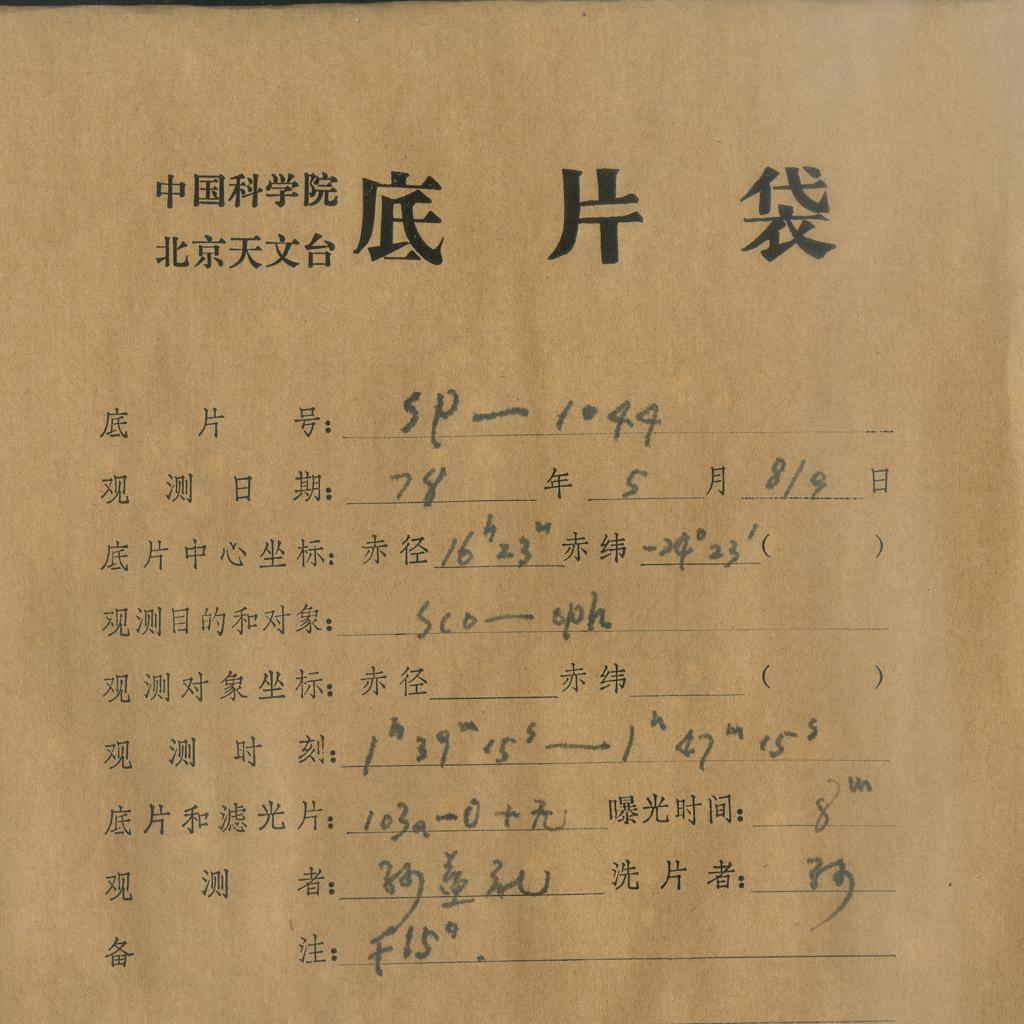 中国科学院
北京天文台
底片袋
底片号: SP—1044
观测日期: 78年 5月 8/9日
底片中心坐标: 赤径 16ʰ23ᵐ 赤纬 -24°23′( )
观测目的和对象: Sco—oph
观测对象坐标: 赤径 赤纬 ( )
观测时刻: 1ʰ39ᵐ15ˢ—1ʰ47ᵐ15ˢ
底片和滤光片: 103a-O+无 曝光时间: 8ᵐ
观测者: 孙益礼 洗片者: 孙
备注: 15°.